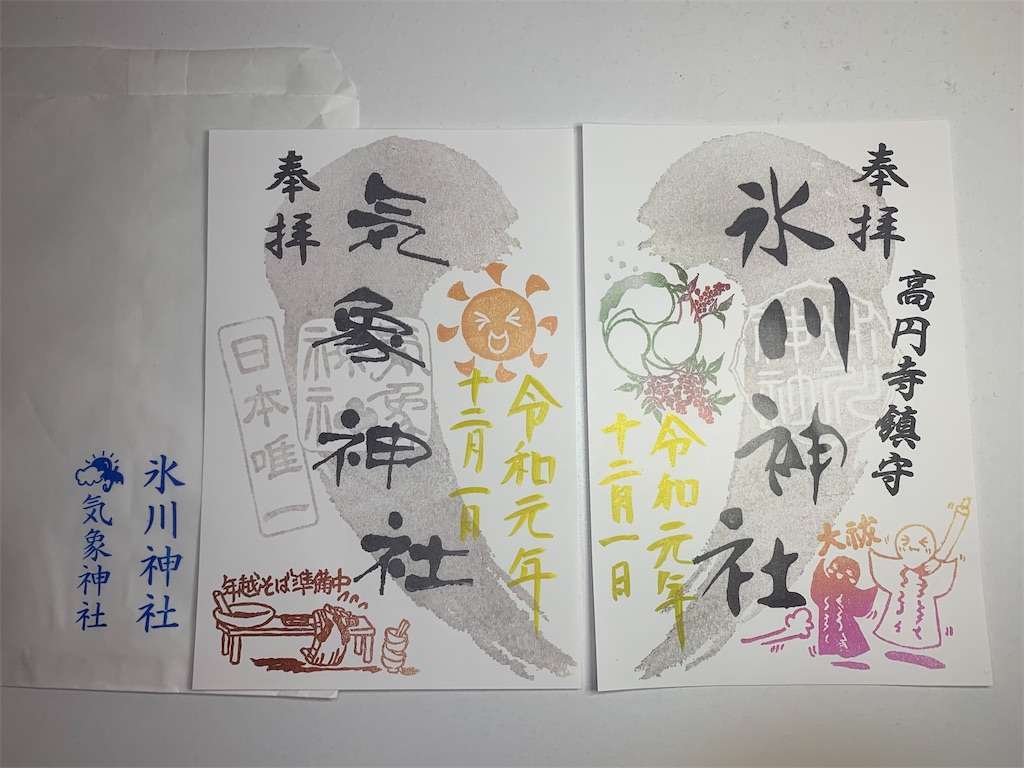 氷川神社
気象神社
奉拝
気象神社
日本唯一
令和元年
十二月一日
年越そば準備中
奉拝
高円寺鎮守
氷川神社
令和元年
十二月一日
大祓